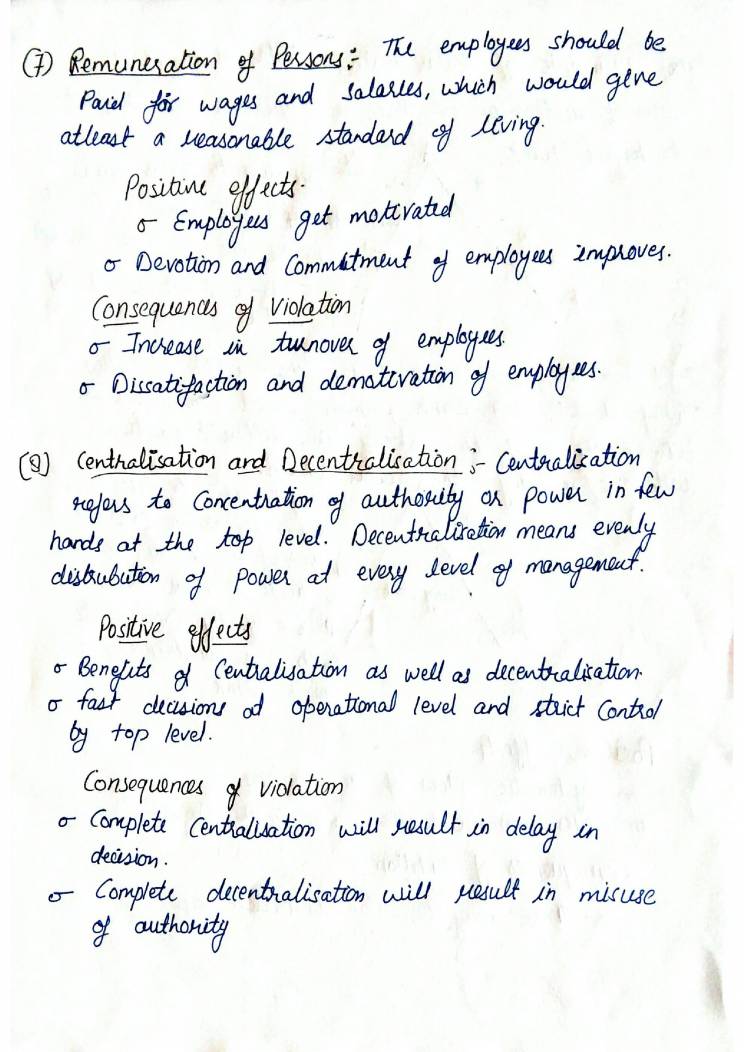 (7) Remuneration of Persons:- The employees should be
Paid for wages and salaries, which would give
atleast a reasonable standard of living.
Positive effects.
Employees get motivated
Devotion and Commitment of employees improves.
Consequences of Violation
Increase in turnover of employees.
Dissatifaction and demotivation of employees.
(8) Centralisation and Decentralisation :- Centralisation
refers to Concentration of authority or Power in few
hands at the top level. Decentralisation means evenly
distrubution of Power at every level of management.
Positive effects
Benefits of Centralisation as well as decentralisation.
fast decisions at operational level and strict Control
by top level.
Consequences of violation
Complete Centralisation will result in delay in
decision.
Complete decentralisation will result in misuse
of authority